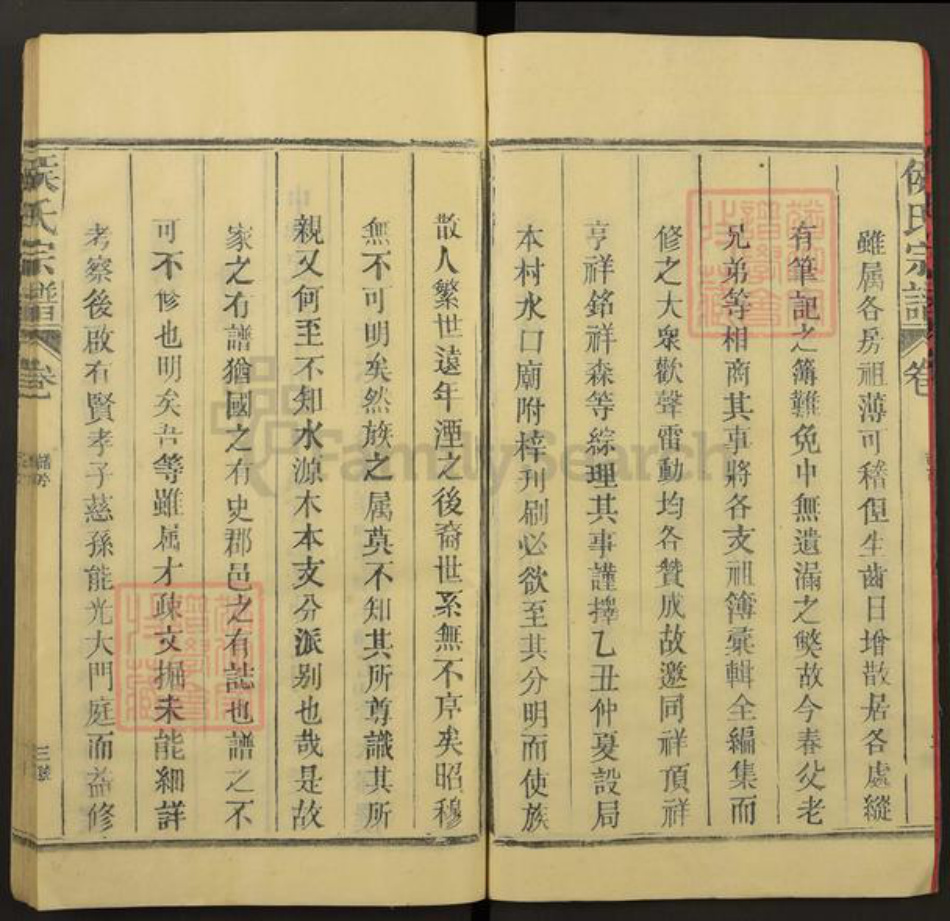 侯氏宗譜 卷
雖属各房祖薄可稽但生齒日增散居各處縱
有筆記之簿難免中無遺漏之弊故今春父老
兄弟等相商其事將各支祖簿彙輯全編集而
修之大衆歡聲雷動均各贊成故邀同祥頂祥
亨祥銘祥森等綜理其事謹擇乙丑仲夏設局
本村水口廟附梓刋刷必欲至其分明而使族
散人繁世遠年湮之後裔世系無不序矣昭穆
無不可明矣然族之属莫不知其所尊識其所
親又何至不知水源木本支分派别也哉是故
家之有譜猶國之有史郡邑之有誌也譜之不
可不修也明矣吾等雖属才疎文掘未能細詳
考察後啟有賢孝子慈孫能光大門庭而益修
侯氏宗譜 卷 三
FamilySearch